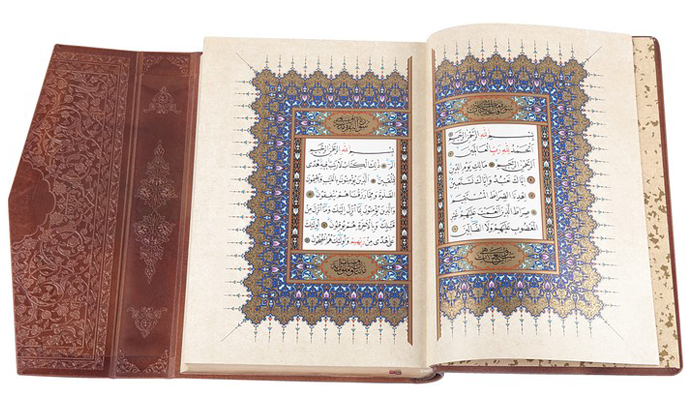 بِسْمِ اللهِ الرَّحْمٰنِ الرَّحِيمِ
اَلْحَمْدُ لِلهِ رَبِّ الْعَالَمِينَ
اَلرَّحْمٰنِ الرَّحِيمِ مَالِكِ يَوْمِ الدِّينِ
اِيَّاكَ نَعْبُدُ وَاِيَّاكَ نَسْتَعِينُ
اِهْدِنَا الصِّرَاطَ الْمُسْتَقِيمَ
صِرَاطَ الَّذِينَ اَنْعَمْتَ عَلَيْهِمْ غَيْرِ
الْمَغْضُوبِ عَلَيْهِمْ وَلَا الضَّالِّينَ
بِسْمِ اللهِ الرَّحْمٰنِ الرَّحِيمِ
الٓمٓ ذٰلِكَ الْكِتَابُ لَا رَيْبَ فِيهِ هُدًى
لِلْمُتَّقِينَ اَلَّذِينَ يُؤْمِنُونَ بِالْغَيْبِ وَيُقِيمُونَ
الصَّلٰوةَ وَمِمَّا رَزَقْنَاهُمْ يُنْفِقُونَ
وَالَّذِينَ يُؤْمِنُونَ بِمَا اُنْزِلَ اِلَيْكَ وَمَا اُنْزِلَ مِنْ
قَبْلِكَ وَبِالْاٰخِرَةِ هُمْ يُوقِنُونَ اُولٰئِكَ
عَلٰى هُدًى مِنْ رَبِّهِمْ وَاُولٰئِكَ هُمُ الْمُفْلِحُونَ